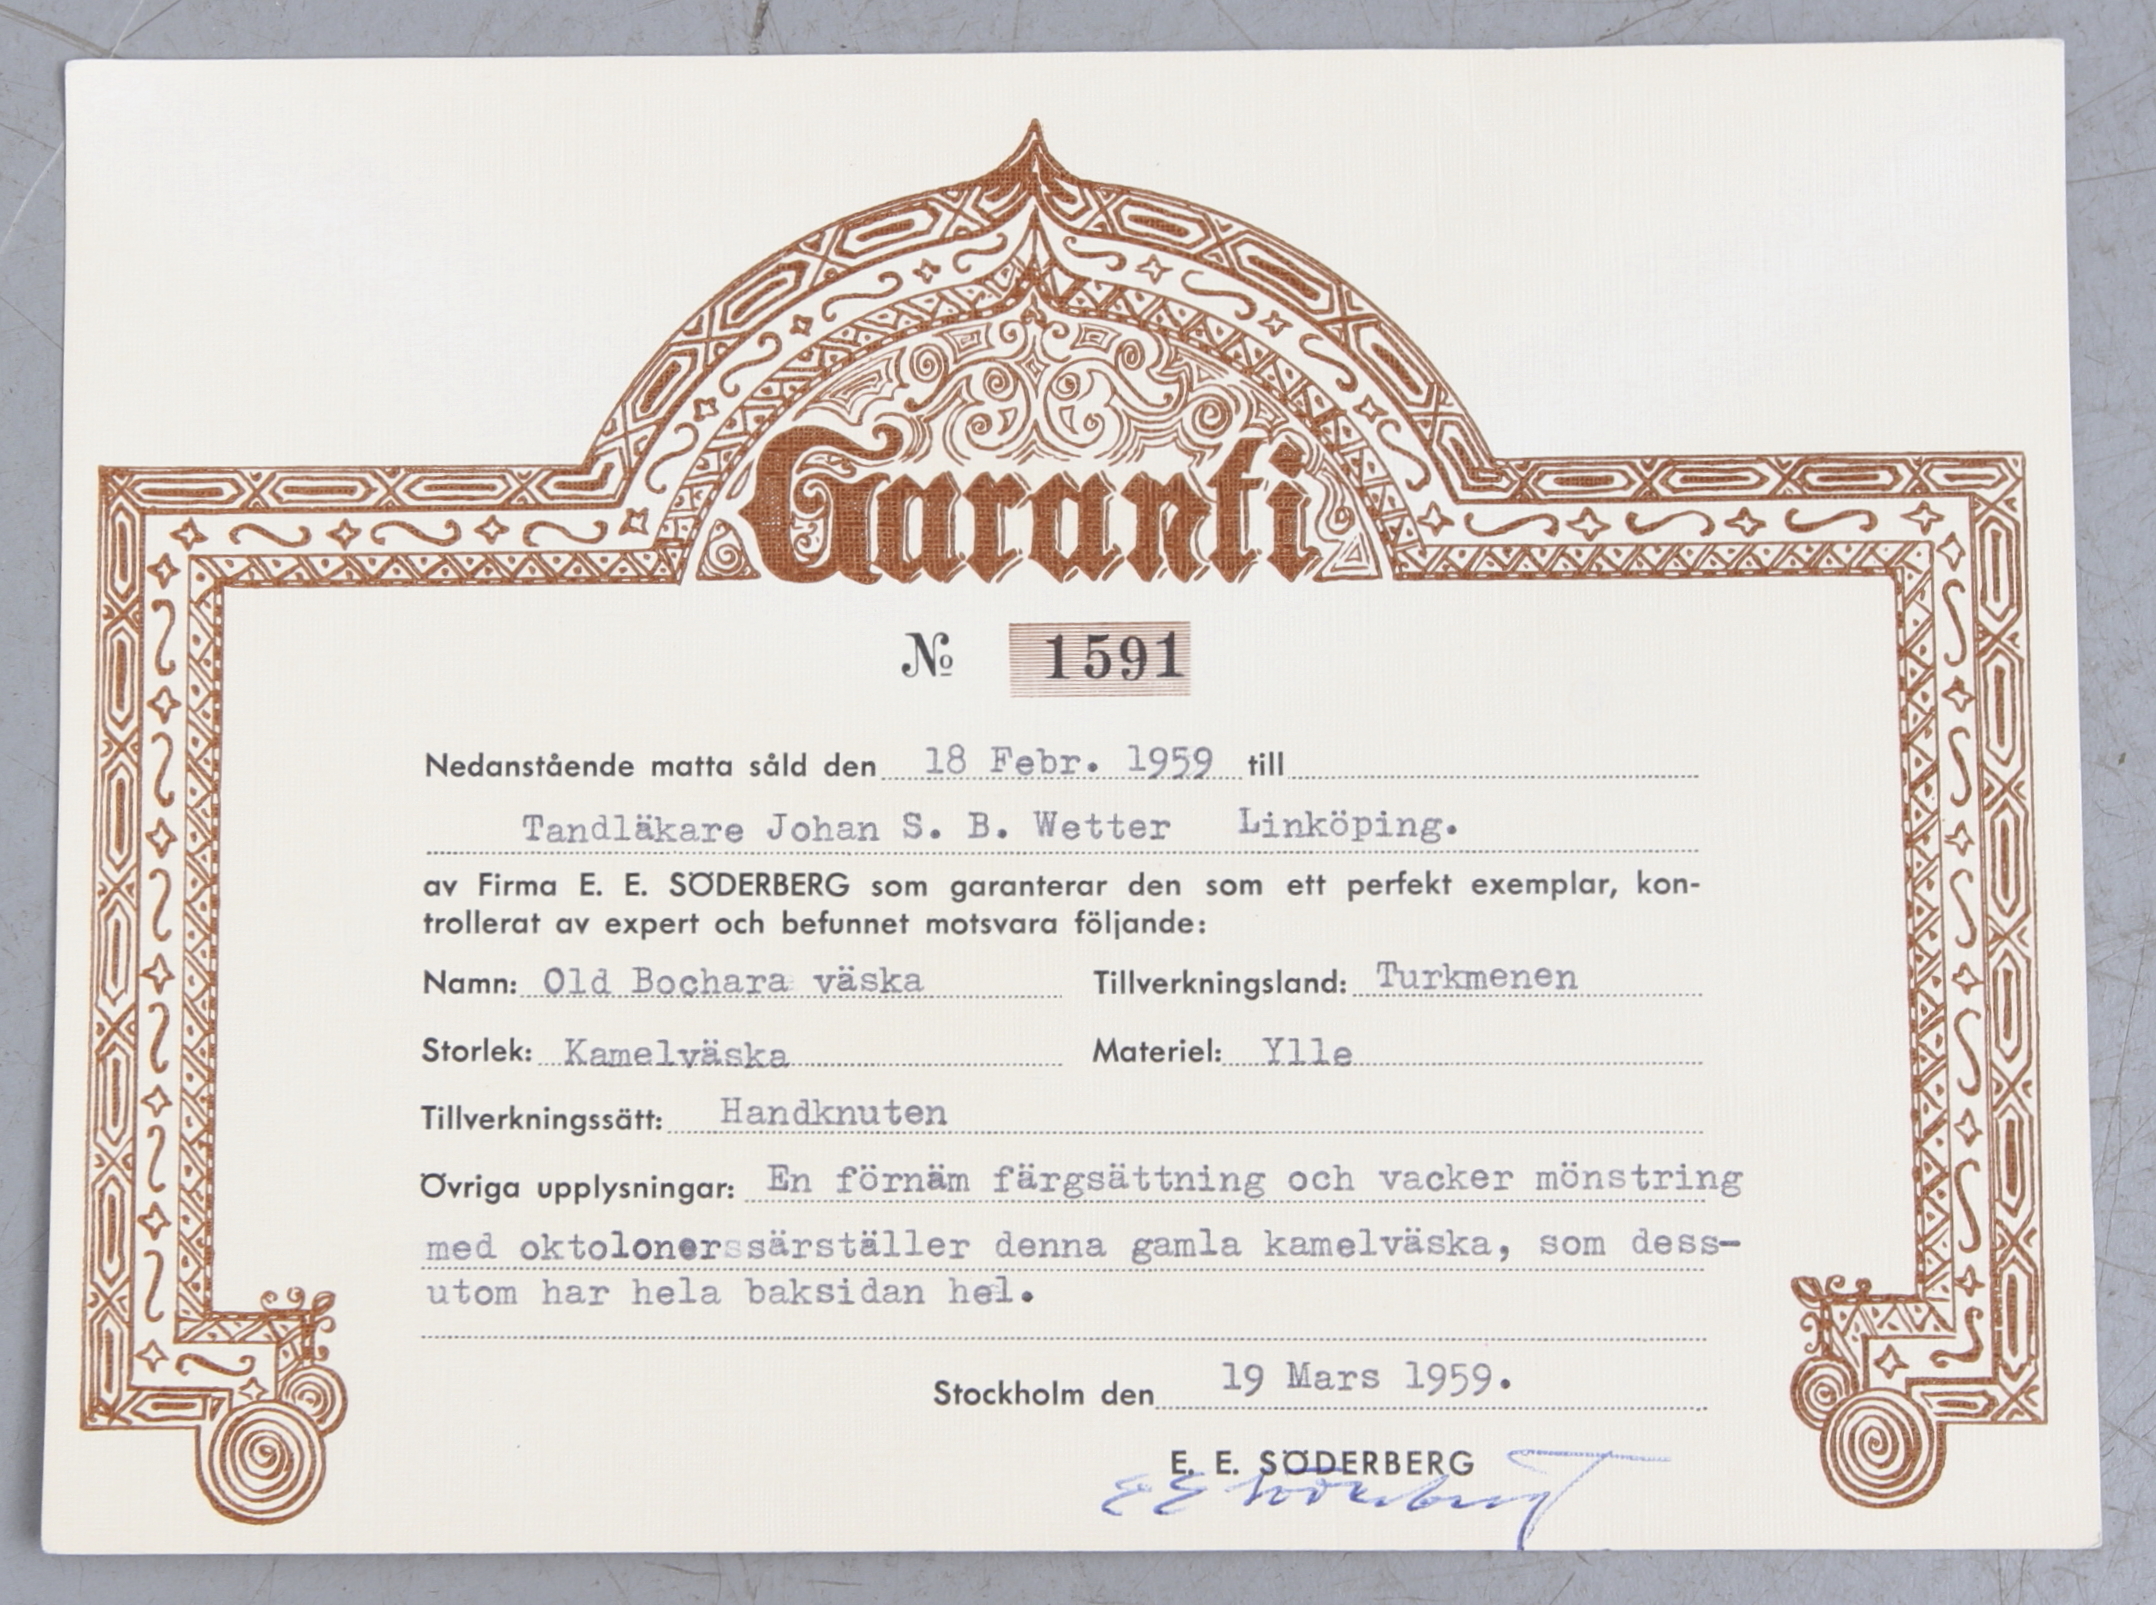 Garanti
№ 1591
Nedanstående matta såld den 18 Febr. 1959 till
Tandläkare Johan S. B. Wetter Linköping.
av Firma E. E. SÖDERBERG som garanterar den som ett perfekt exemplar, kon-
trollerat av expert och befunnet motsvara följande:
Namn: Old Bochara väska Tillverkningsland: Turkmenen
Storlek: Kamelväska Materiel: Ylle
Tillverkningssätt: Handknuten
Övriga upplysningar: En förnäm färgsättning och vacker mönstring
med oktoloner särställer denna gamla kamelväska, som dess-
utom har hela baksidan hel.
Stockholm den 19 Mars 1959.
E. E. SÖDERBERG
E E Söderberg